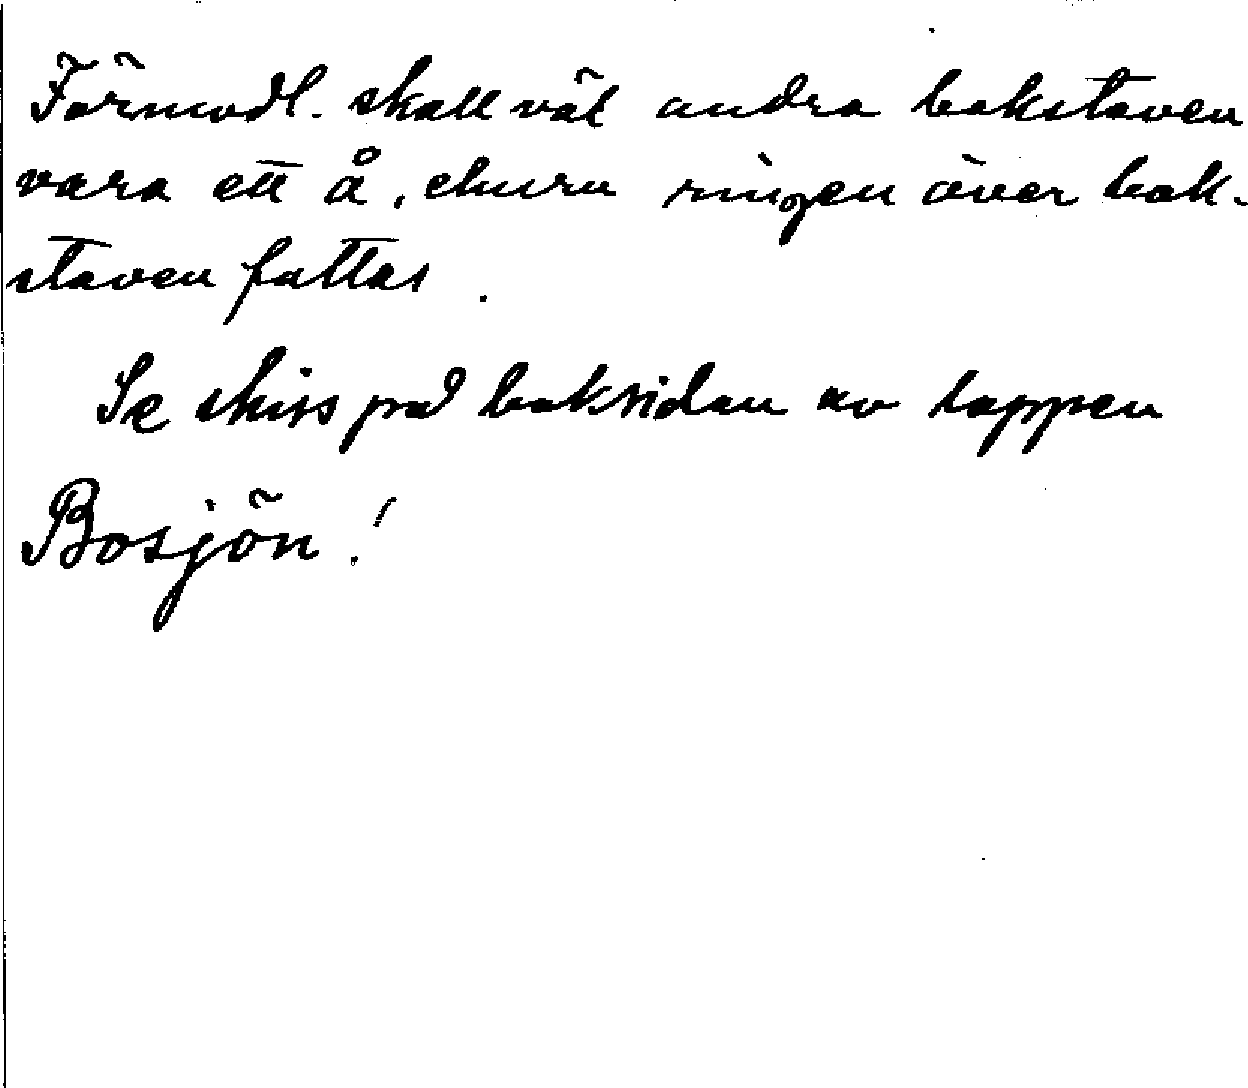 Förmodl. skall väl andra bokstaven
vara ett å, ehuru ringen över bok-
staven fattas.
Se skiss på baksidan av lappen
Bosjön!